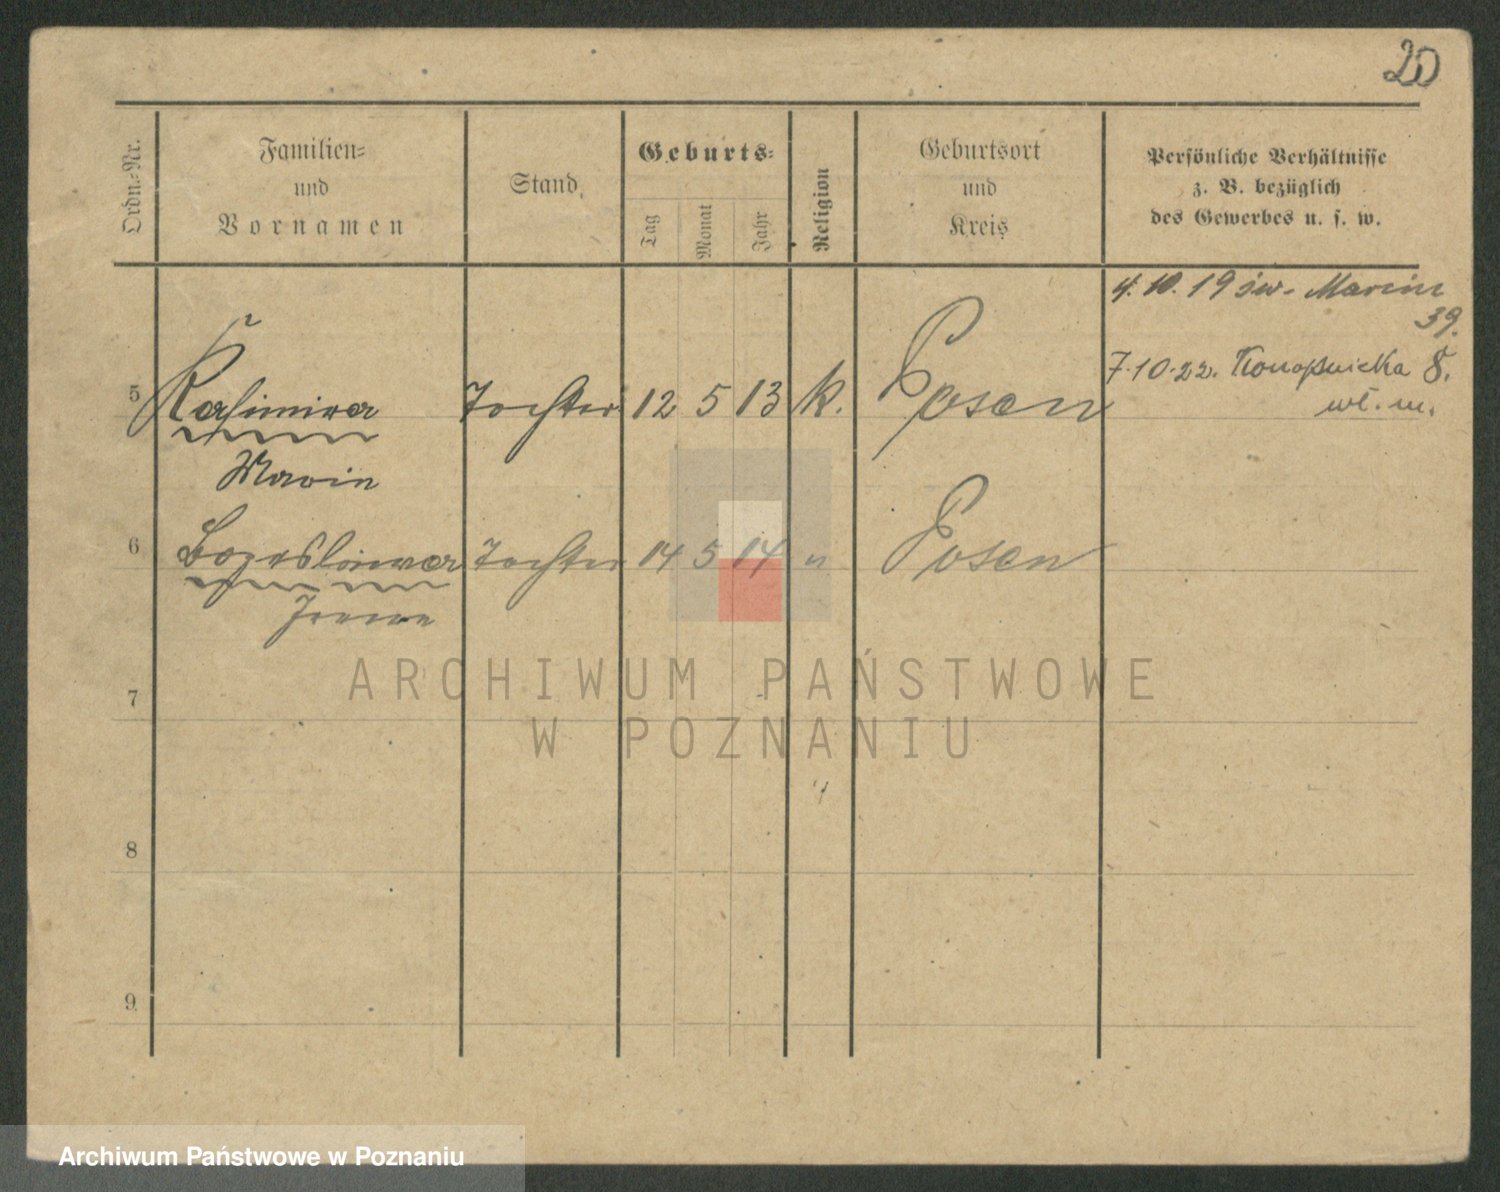 20
Ordn.-Nr.
Familien-
und
Vornamen
Stand
Geburts-
Tag
Monat
Jahr
Religion
Geburtsort
und
Kreis
Persönliche Verhältnisse
z. B. bezüglich
des Gewerbes u. s. w.
4. 10. 19 św. Marcin
39.
7.10.22. Konopnicka 8.
wł. m.
5 Kasimira Tochter 12 5 13 k. Posen
Maria
6 Tochter 14 5 14 " Posen
Irene
7
8
9
ARCHIWUM PAŃSTWOWE
W POZNANIU
Archiwum Państwowe w Poznaniu